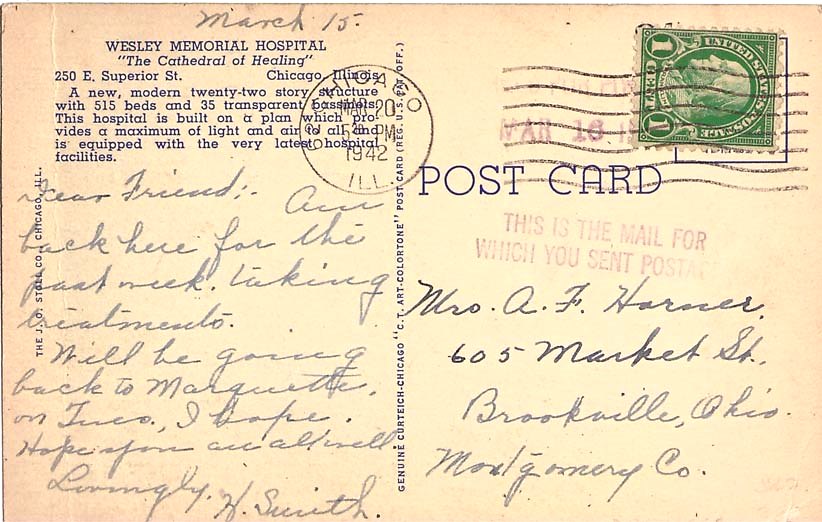 March 15.
WESLEY MEMORIAL HOSPITAL
"The Cathedral of Healing"
250 E. Superior St. Chicago, Illinois
A new, modern twenty-two story structure
with 515 beds and 35 transparent bassinets.
This hospital is built on a plan which pro-
vides a maximum of light and air to all and
is equipped with the very latest hospital
facilities.
Dear Friend:- Am
back here for the
past week. taking
treatments.
Will be going
back to Marquette.
on Tues., I hope.
Hope you are all well
Lovingly, H. Smith.
THE J. O. STOLL CO., CHICAGO, ILL.
GENUINE CURTEICH-CHICAGO "C.T. ART-COLORTONE" POST CARD (REG. U.S. PAT. OFF.)
CHICAGO
MAR 20
5 PM
1942
ILL.
MAR 16
1 1
POST CARD
THIS IS THE MAIL FOR
WHICH YOU SENT POSTA
Mrs. A. F. Horner,
605 Market St.,
Brookville, Ohio.
Montgomery Co.